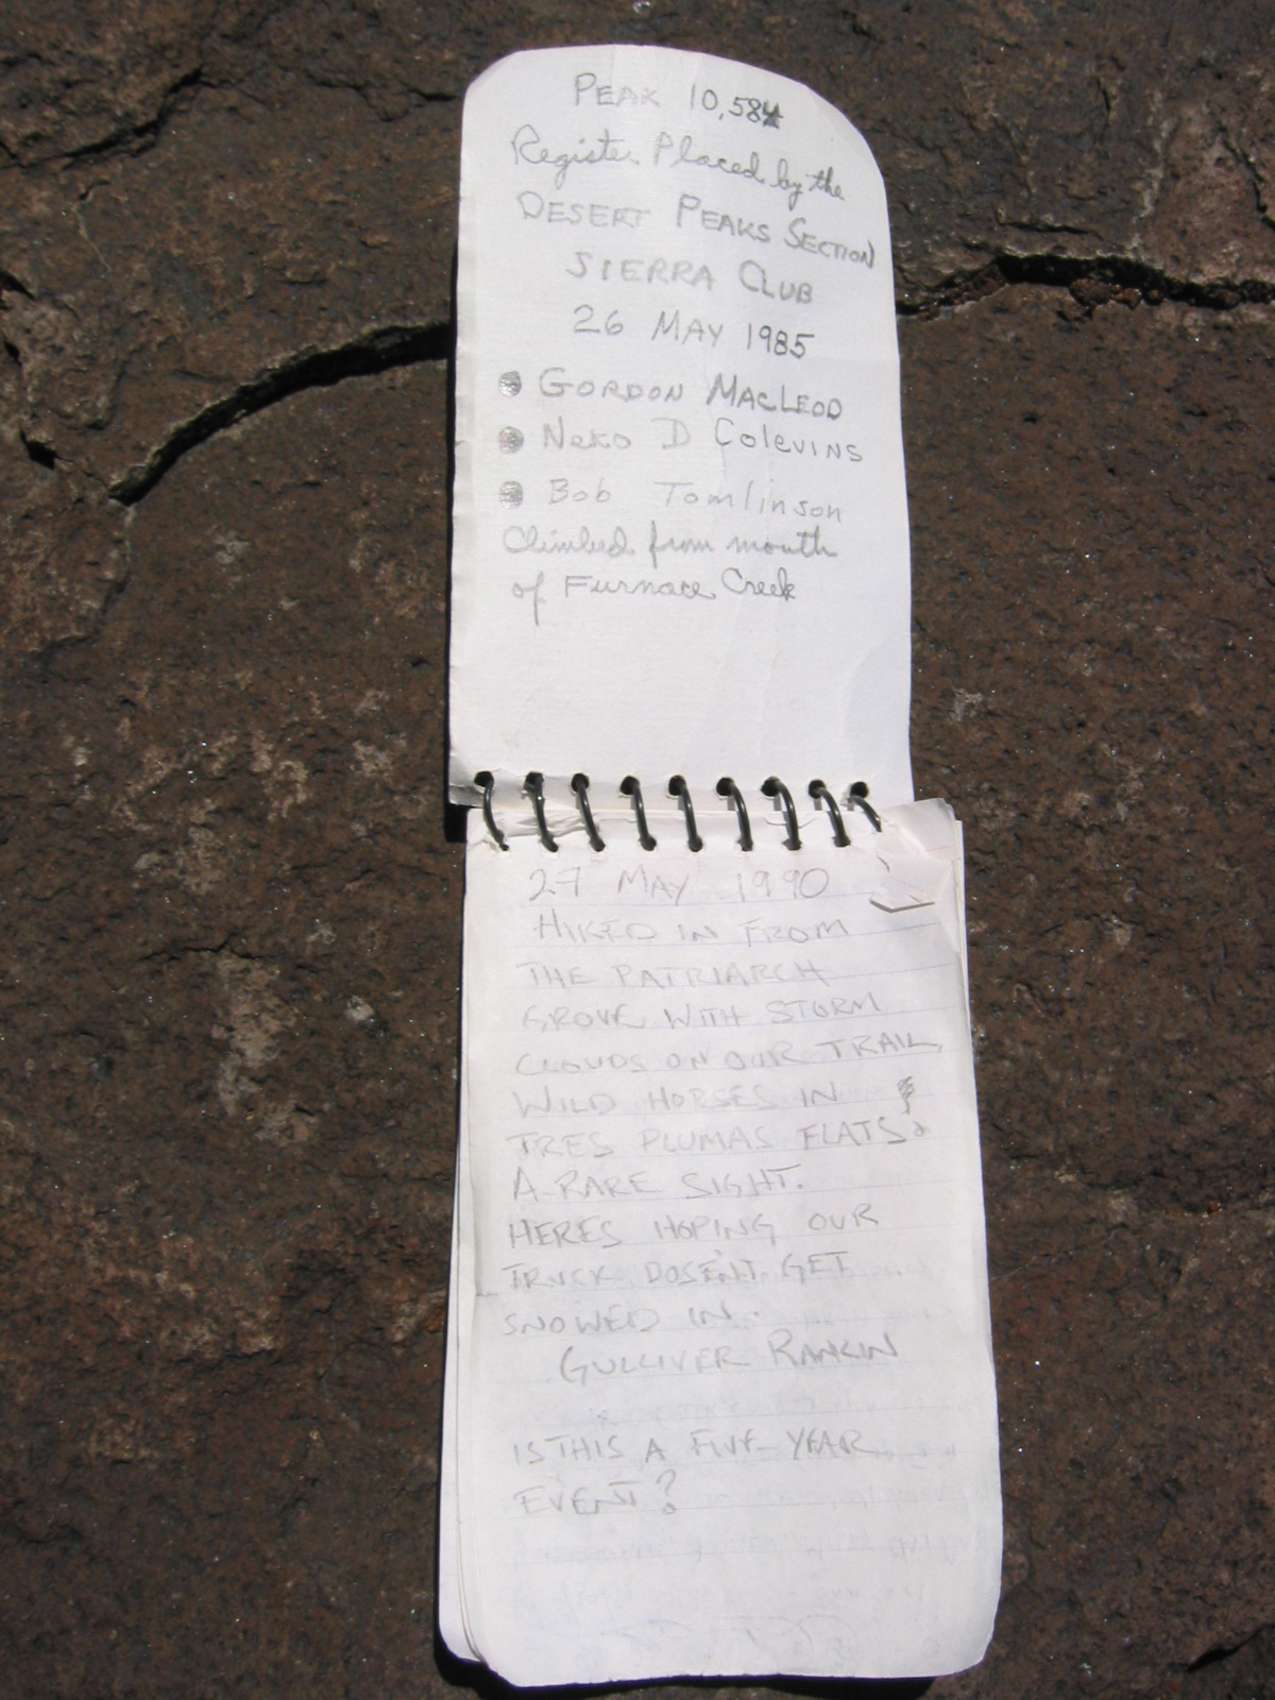 PEAK 10,584
Register Placed by the
DESERT PEAKS SECTION
SIERRA CLUB
26 MAY 1985
GORDON MACLEOD
Neko D Colevins
Bob Tomlinson
Climbed from mouth
of Furnace Creek
27 MAY 1990
HIKED IN FROM
THE PATRIARCH
GROVE WITH STORM
CLOUDS ON OUR TRAIL,
WILD HORSES IN
TRES PLUMAS FLATS
A RARE SIGHT.
HERES HOPING OUR
TRUCK DOSEN'T GET
SNOWED IN.
GULLIVER RANKIN
IS THIS A FIVE-YEAR
EVENT?